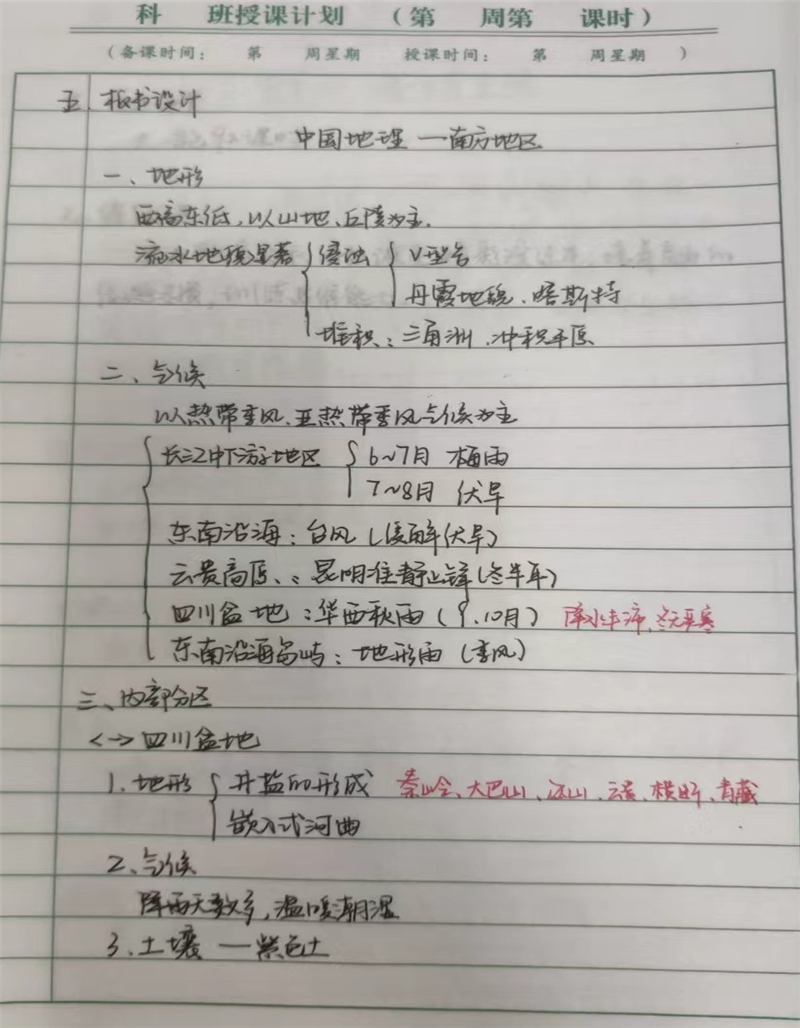 科 班授课计划 （第 周第 课时）
（备课时间： 第 周星期 授课时间： 第 周星期 ）
五 板书设计
中国地理 一南方地区
一、地形
西高东低，以山地、丘陵为主.
流水地貌显著 侵蚀 V型谷
丹霞地貌、喀斯特
堆积：三角洲、冲积平原
二、气候
以热带季风、亚热带季风气候为主
长江中下游地区 6~7月 梅雨
7~8月 伏旱
东南沿海：台风（缓解伏旱）
云贵高原：昆明准静止锋（冬半年）
四川盆地：华西秋雨（9、10月） 降水丰沛，冬无严寒
东南沿海岛屿：地形雨（季风）
三、内部分区
<一>四川盆地
1.地形 井盐的形成 秦岭、大巴山、巫山、云贵、横断、青藏
嵌入式河曲
2.气候
降雨天数多，温暖潮湿
3.土壤 —紫色土